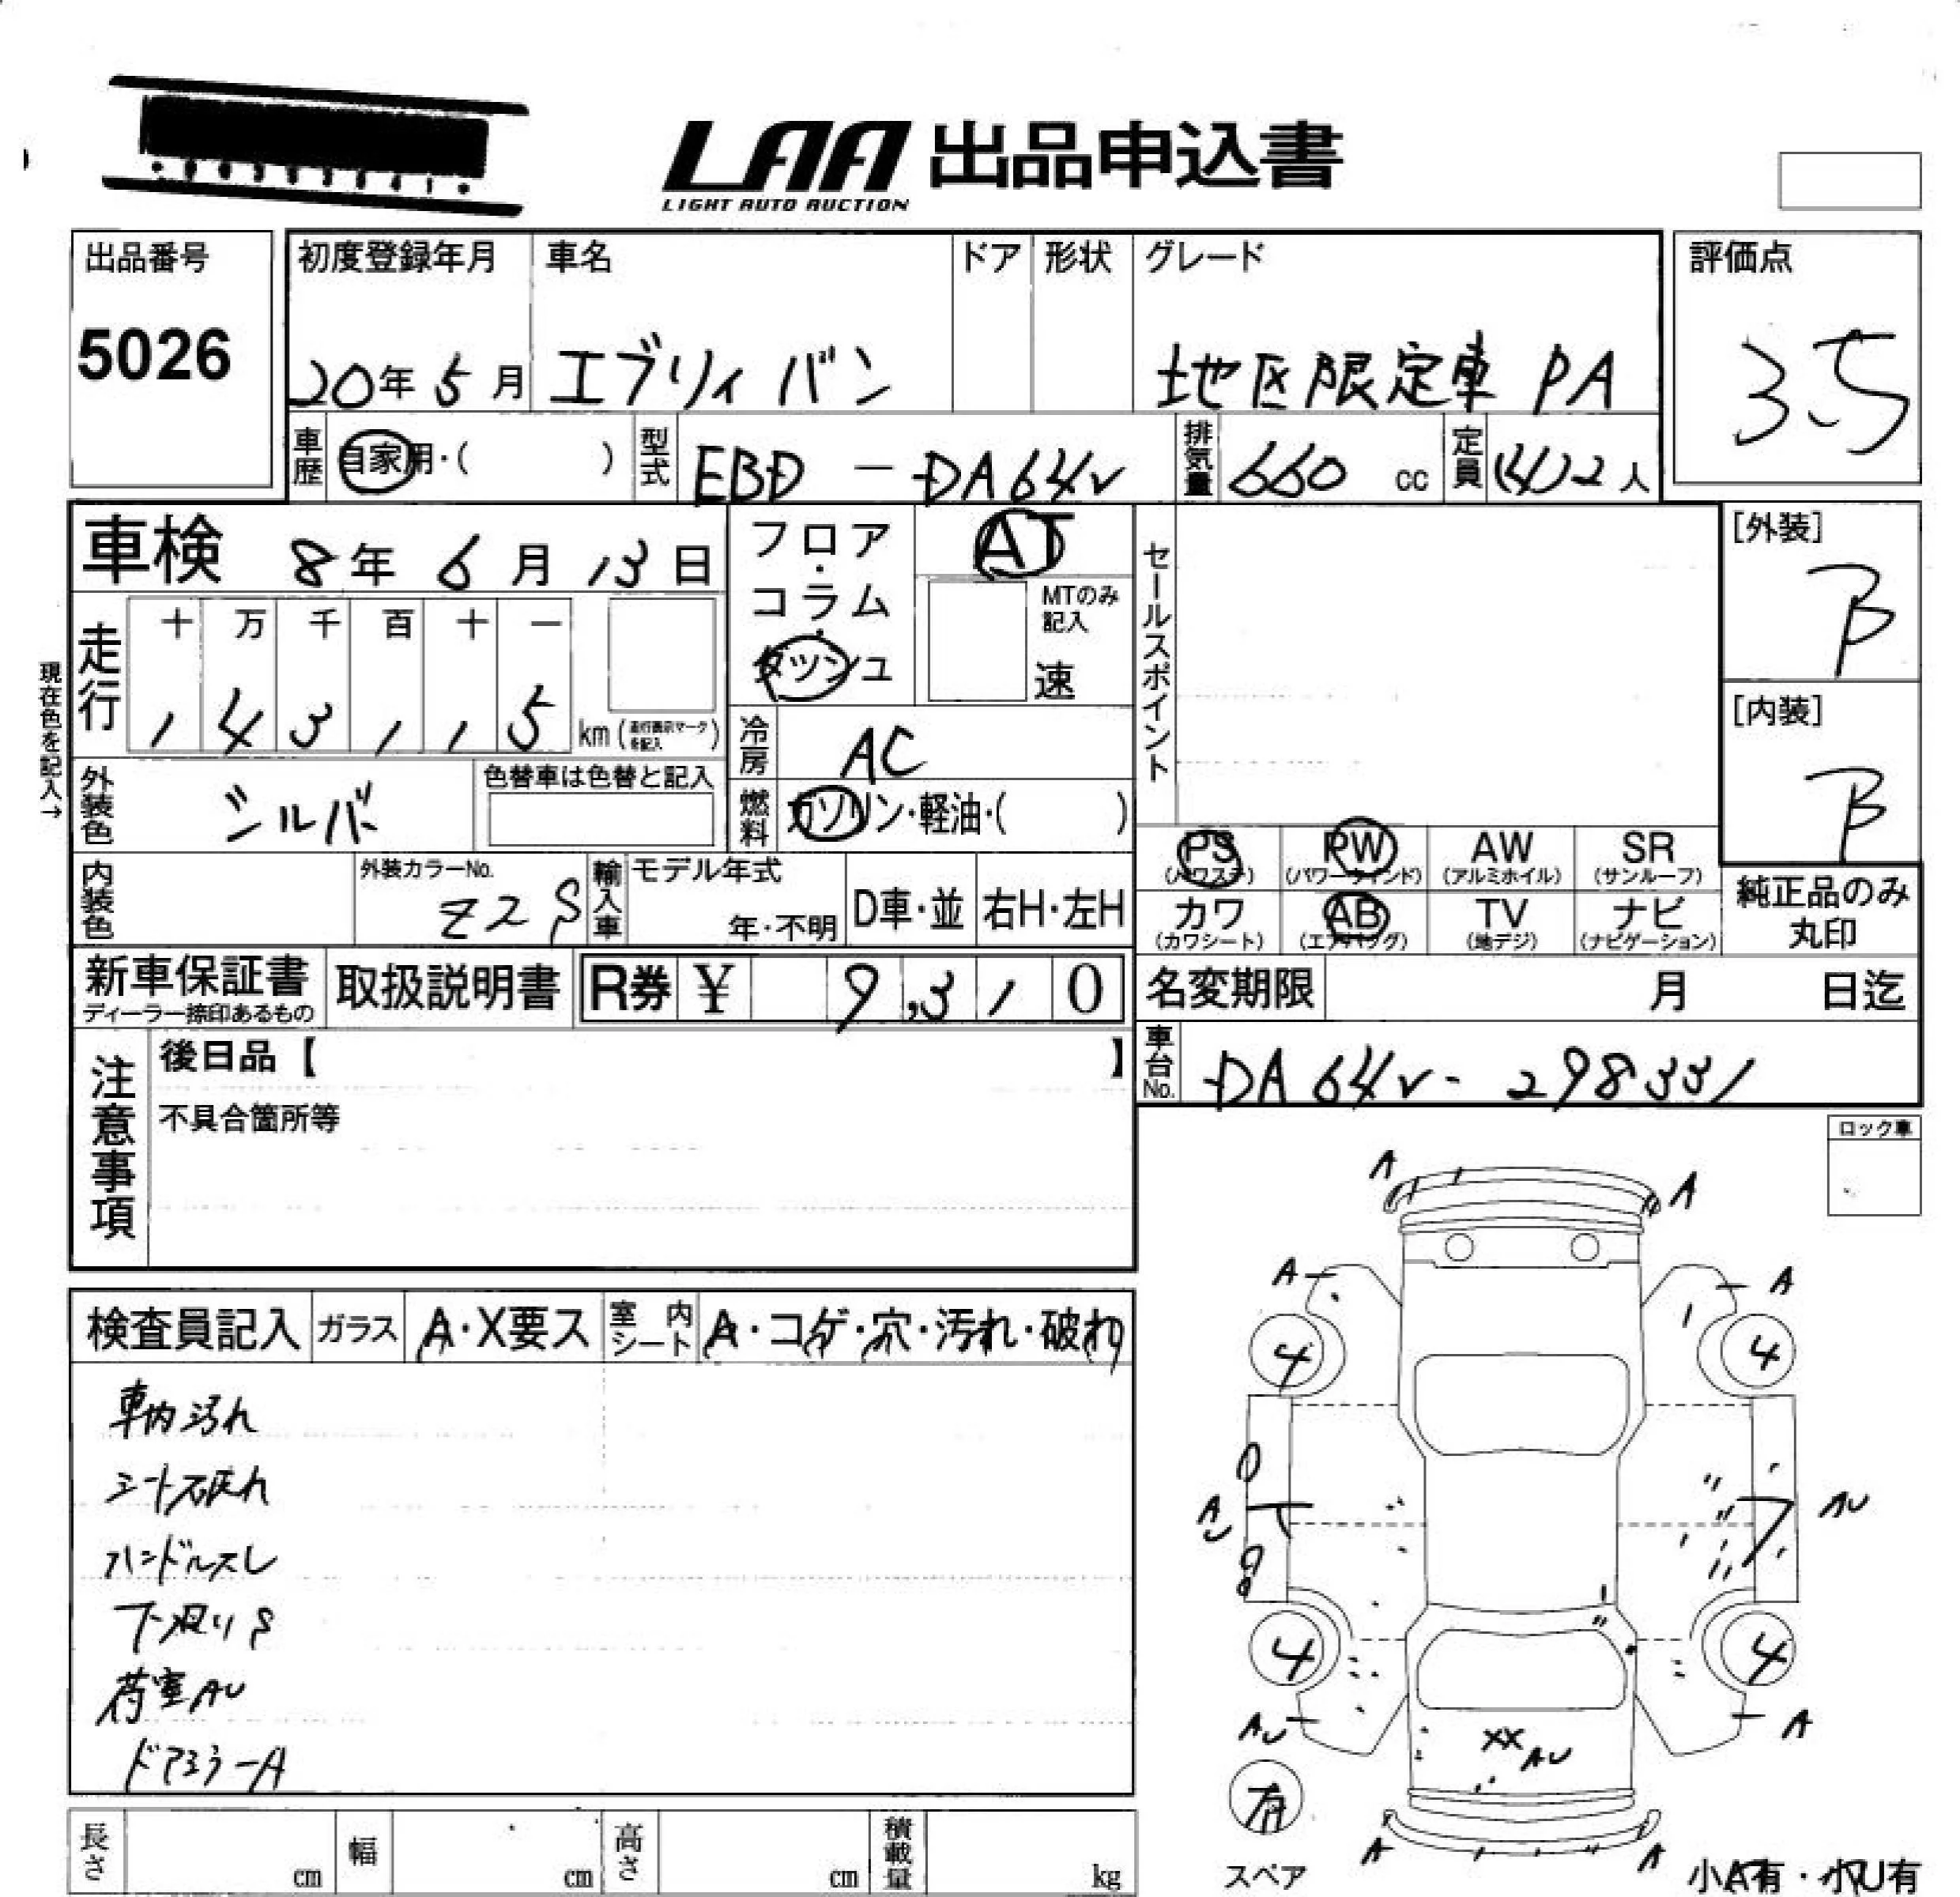 LAA 出品申込書
LIGHT AUTO AUCTION
出品番号
5026
初度登録年月
20年 5月
車名
エブリィ バン
ドア
形状
グレード
地区限定車 PA
評価点
3.5
車歴
自家用・( )
型式
EBD - DA64V
排気量
660 cc
定員
(4)2人
車検 8年 6月 13日
フロア・コラム・ダッシュ
AT
MTのみ記入
速
セールスポイント
[外装]
B
[内装]
B
現在色を記入→
走行
十 万 千 百 十 一
1 4 3 1 1 5 km (走行表示マークを記入)
冷房
AC
外装色
シルバ
色替車は色替と記入
燃料
ガソリン・軽油・( )
PS (パワステ)
PW (パワーウィンド)
AW (アルミホイル)
SR (サンルーフ)
カワ (カワシート)
AB (エアバッグ)
TV (地デジ)
ナビ (ナビゲーション)
純正品のみ丸印
内装色
外装カラーNo.
Z2S
輸入車
モデル年式
年・不明
D車・並
右H・左H
新車保証書
ディーラー捺印あるもの
取扱説明書
R券 ¥ 9,310
名変期限 月 日迄
車台No.
DA64V- 298331
注意事項
後日品【 】
不具合箇所等
ロック車
検査員記入
ガラス
A・X要ス
室内シート
A・コゲ・穴・汚れ・破れ
車内汚れ
シート破れ
ハンドルスレ
下廻りS
荷室AU
ドアミラーA
A
A
A
A
4
4
AU
AU
4
4
AU
A
XX
AU
有
スペア
A
A
小A有・小U有
長さ cm
幅 cm
高さ cm
積載量 kg